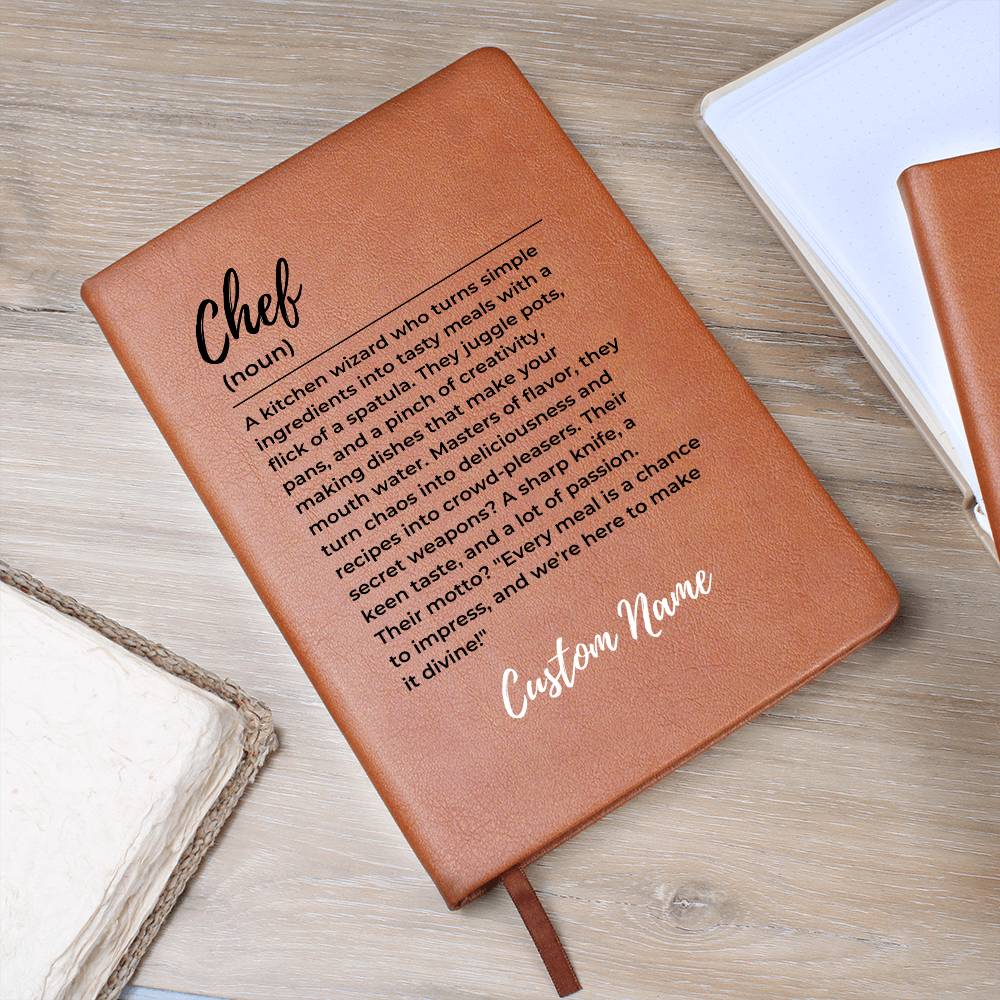 Chef
(noun)
A kitchen wizard who turns simple
ingredients into tasty meals with a
flick of a spatula. They juggle pots,
pans, and a pinch of creativity,
making dishes that make your
mouth water. Masters of flavor, they
turn chaos into deliciousness and
recipes into crowd-pleasers. Their
secret weapons? A sharp knife, a
keen taste, and a lot of passion.
Their motto? "Every meal is a chance
to impress, and we're here to make
it divine!"
Custom Name